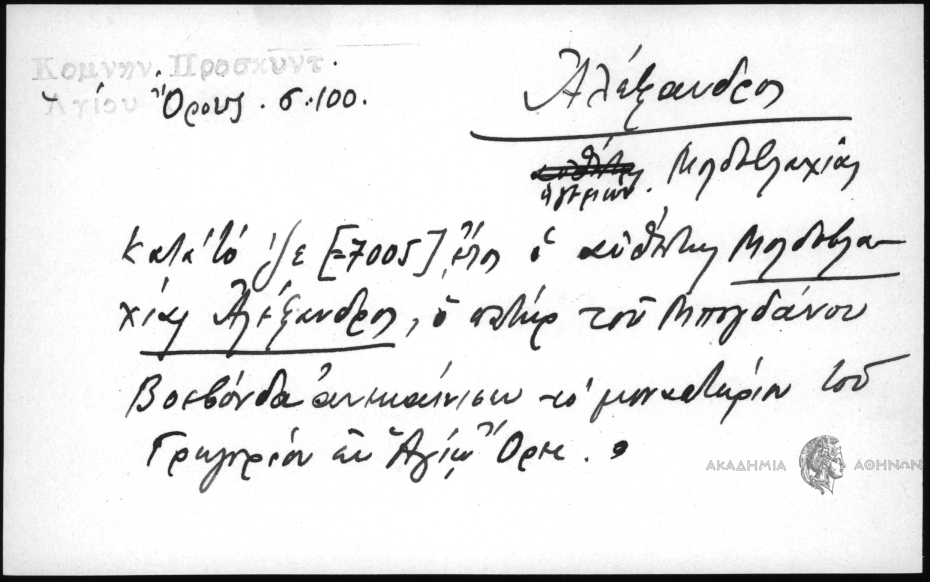 Κομνην. Προσκυντ.
Ἁγίου Ὄρους. σ. 100.
Ἀλέξανδρος
ἡγεμών. Μολδοβλαχίας
Κατὰ τὸ ͵ζε [=7005] ἔτος ὁ αὐθέντης Μολδοβλα-
χίας Ἀλέξανδρος, ὁ πατὴρ τοῦ Μπογδάνου
Βοεβόνδα ἀνεκαίνισεν τὸ μοναστήριον τοῦ
Γρηγορίου ἐν Ἁγίῳ Ὄρει.
ΑΚΑΔΗΜΙΑ ΑΘΗΝΩΝ